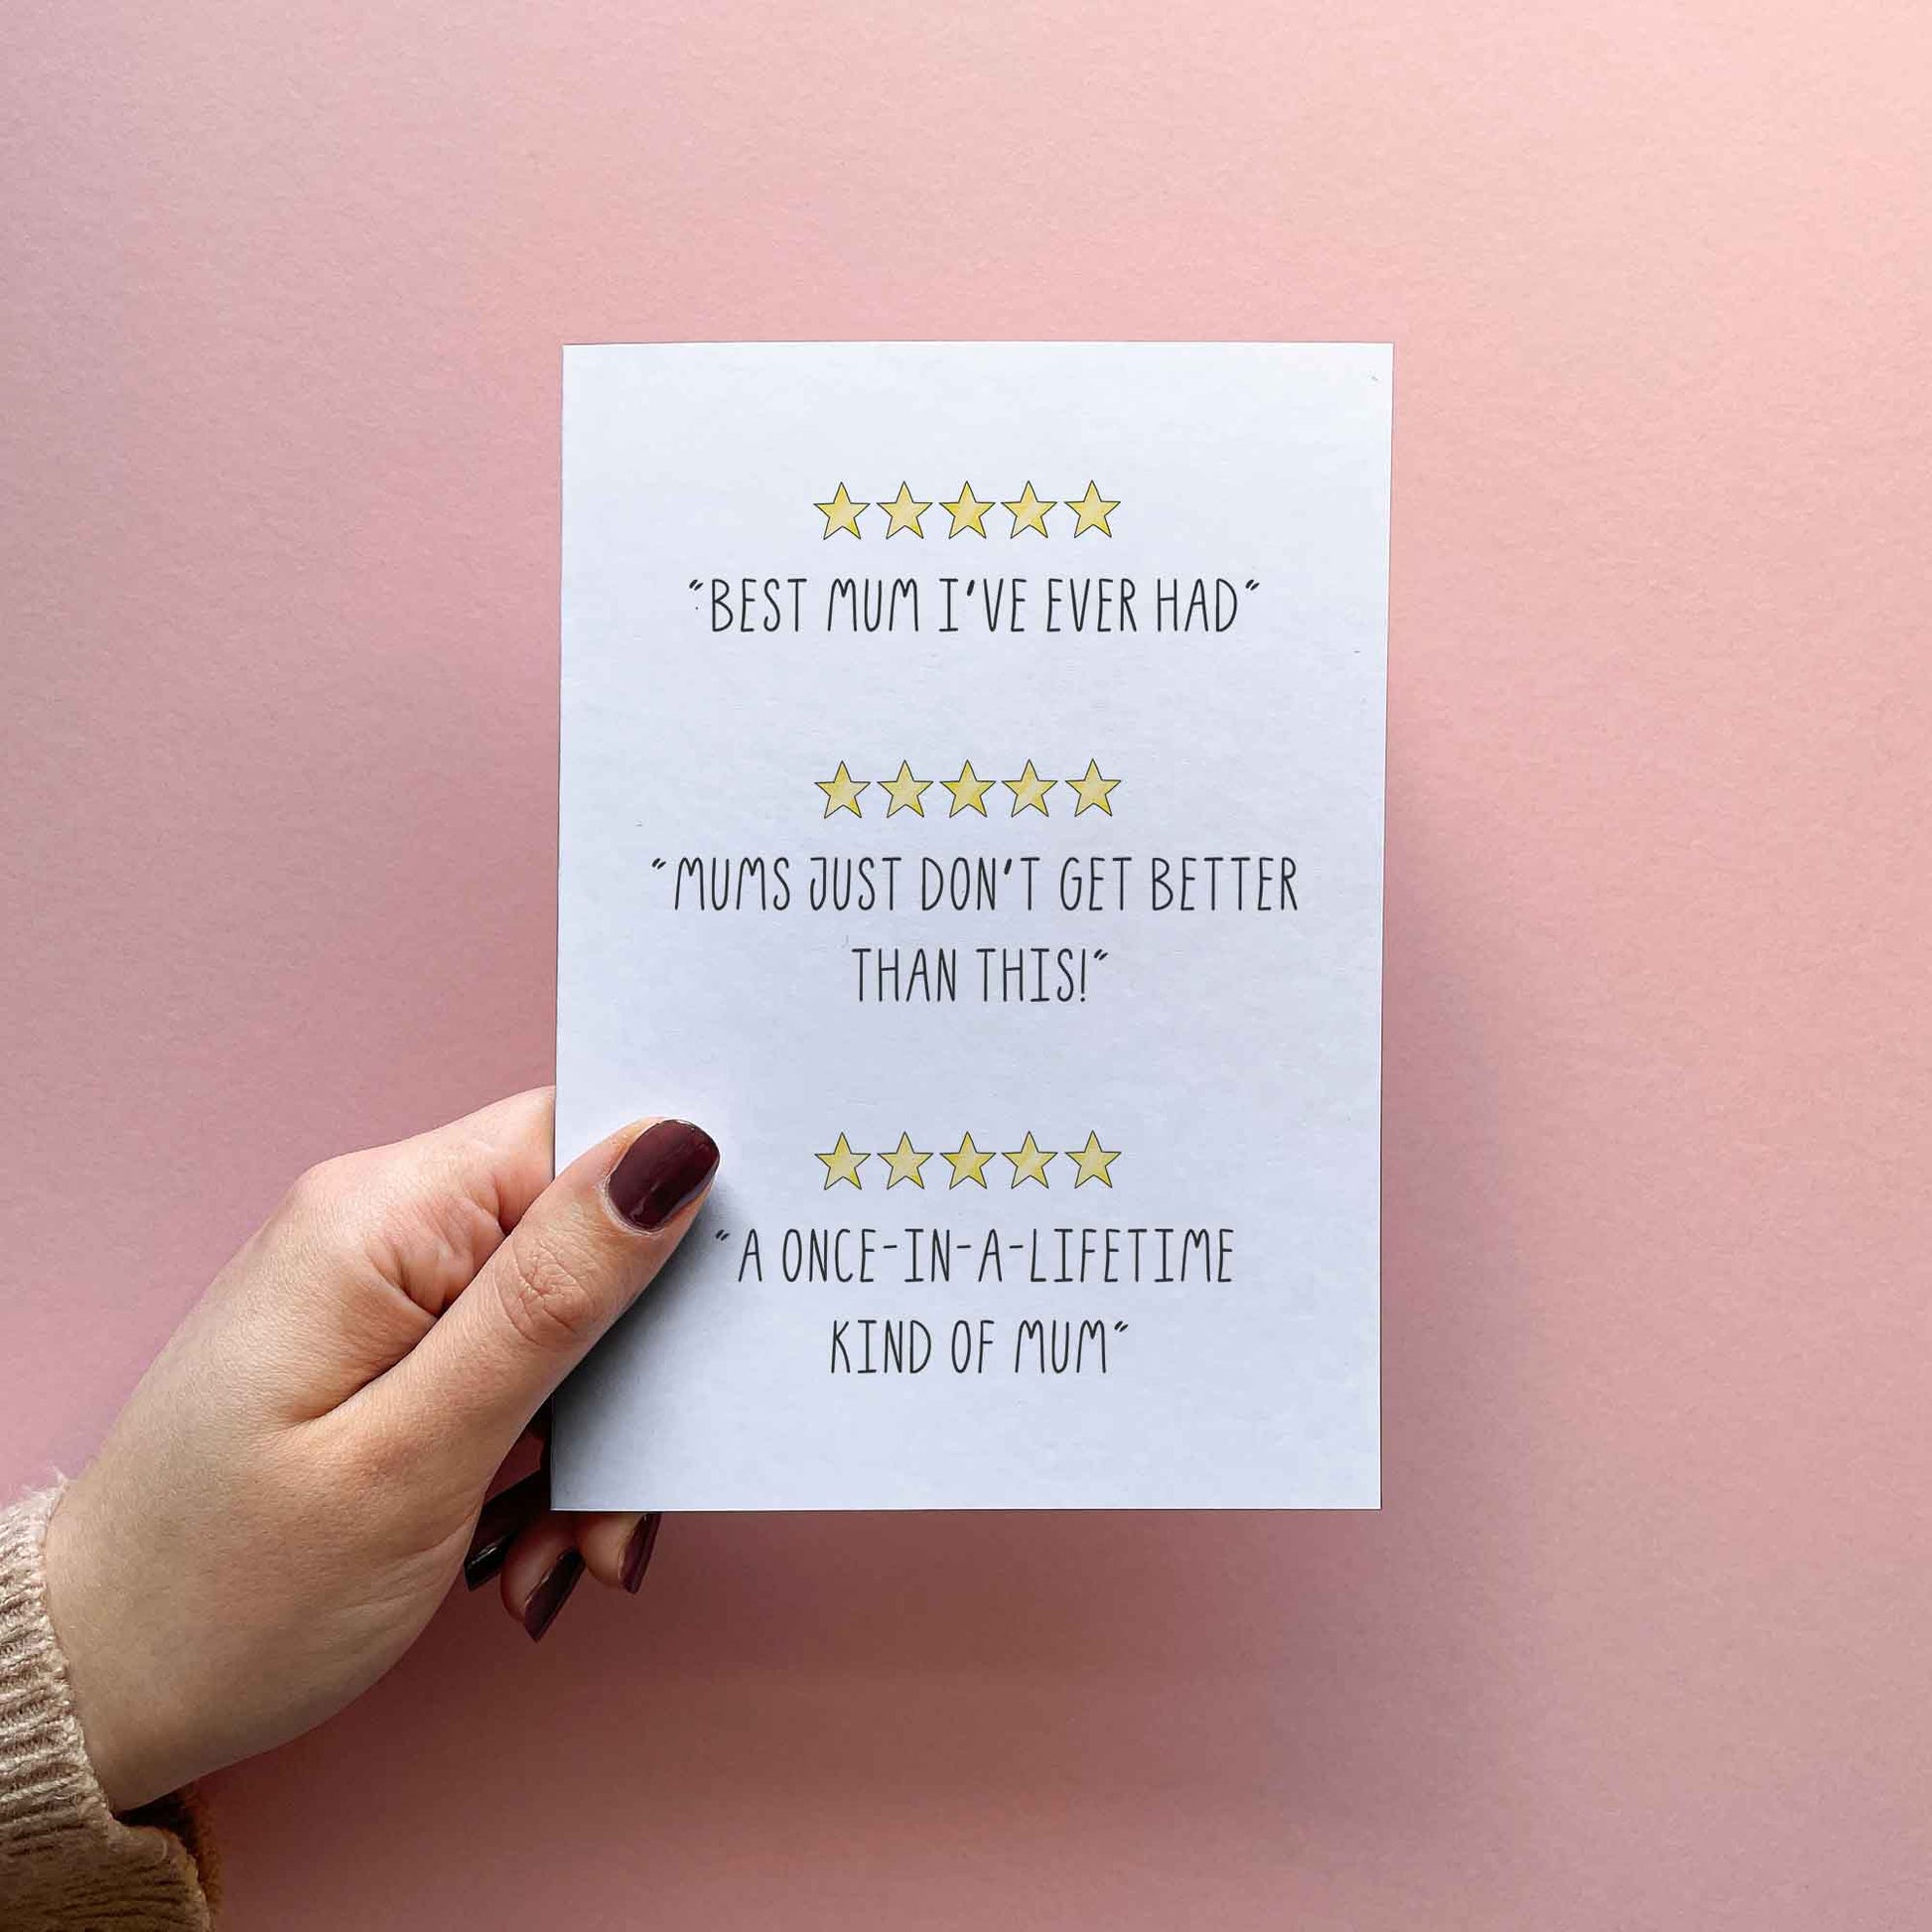 “BEST MUM I'VE EVER HAD”
“MUMS JUST DON'T GET BETTER
THAN THIS!”
“A ONCE-IN-A-LIFETIME
KIND OF MUM”